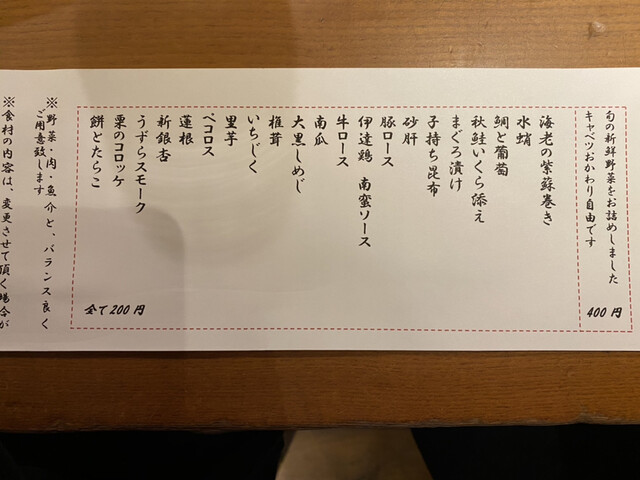 旬の新鮮野菜をお詰めしました
キャベツおかわり自由です
400円
海老の紫蘇巻き
水蛸
鯛と葡萄
秋鮭いくら添え
まぐろ漬け
子持ち昆布
砂肝
豚ロース
伊達鶏 南蛮ソース
牛ロース
南瓜
大黒しめじ
椎茸
いちじく
里芋
ペコロス
蓮根
新銀杏
うずらスモーク
栗のコロッケ
餅とたらこ
全て200円
※野菜・肉・魚介と、バランス良く
ご用意致します
※食材の内容は、変更させて頂く場合が